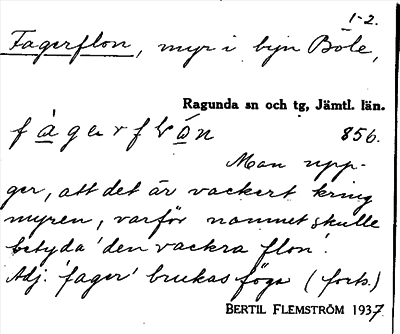 1-2.
Fagerflon, myr i byn Böle,
Ragunda sn och tg, Jämtl. län.
856.
Man upp-
ger, att det är vackert kring
myren, varför namnet skulle
betyda 'den vackra flon'.
Adj. 'fager' brukas föga (forts.)
BERTIL FLEMSTRÖM 1937.